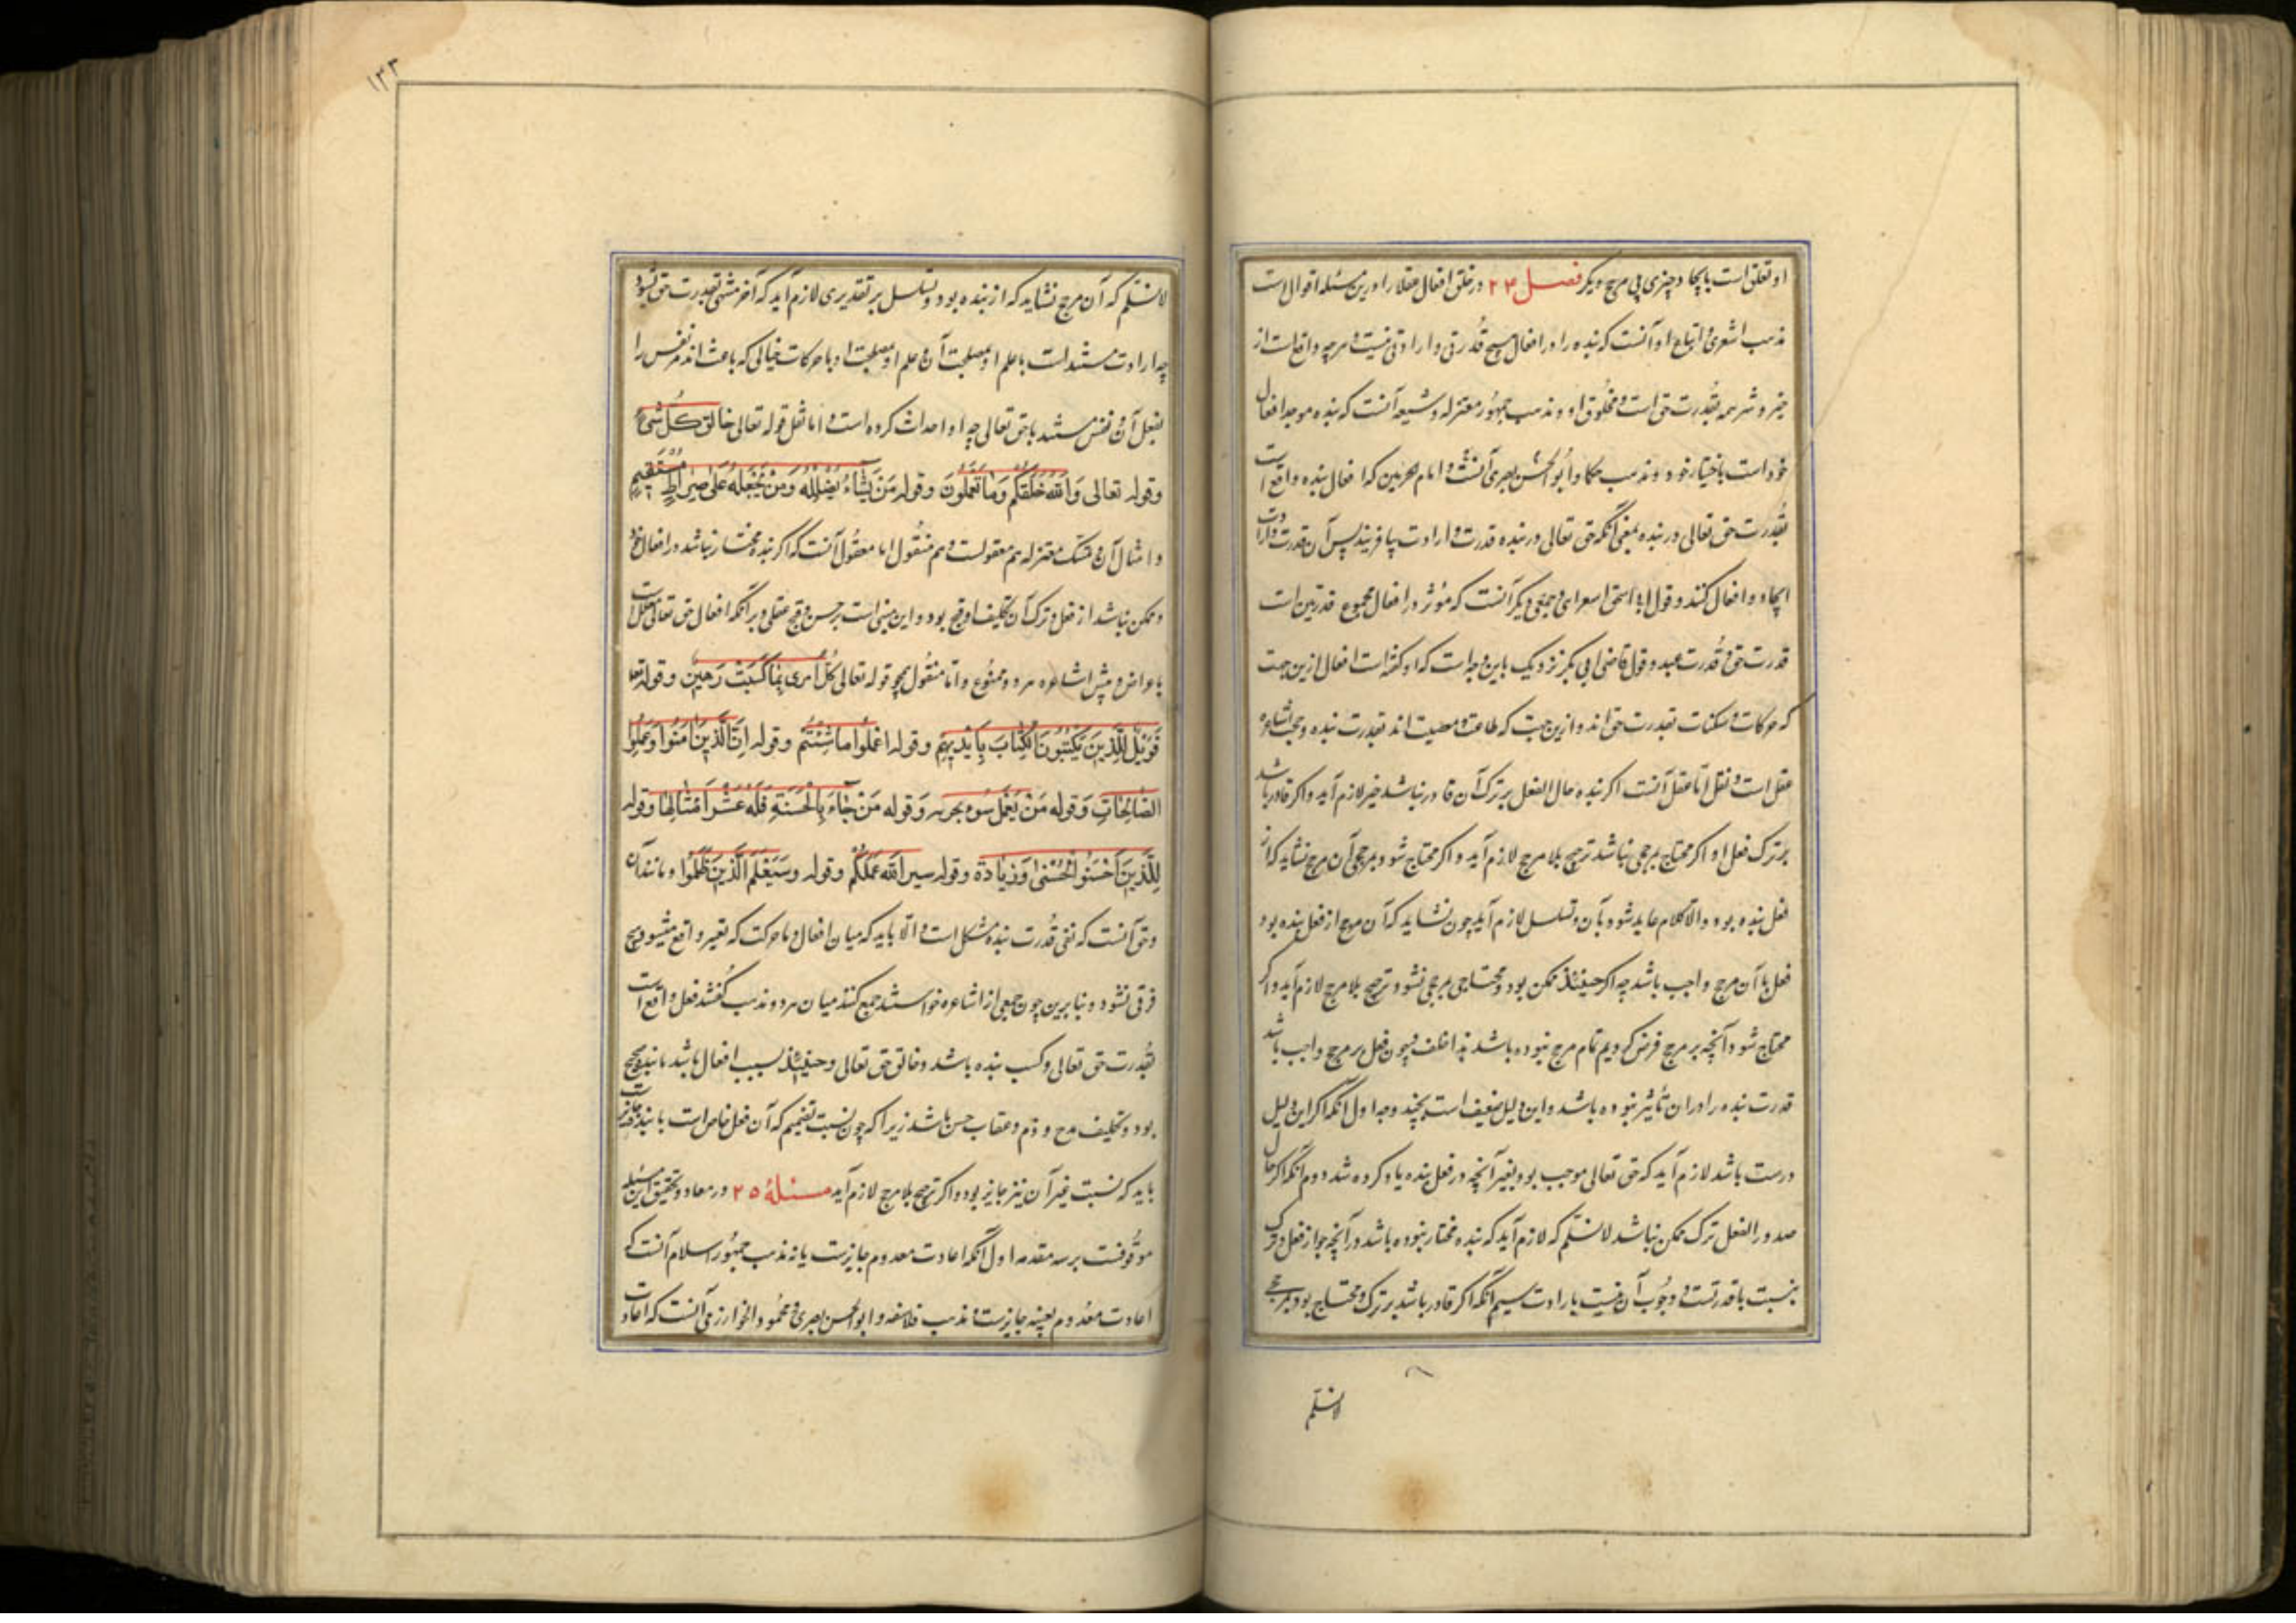 او تعلق است بایجاد چیزی بی مرجح دیگر فصل ۲۴ در خلق افعال عقلا را درین مسئله اقوال است
مذهب اشعری و اتباع او آنست که بنده را در افعال هیچ قدرتی و ارادتی نیست و هر چه واقع است از
خیر و شر همه بقدرت حق است و مخلوق او و مذهب جمهور معتزله و شیعه آنست که بنده موجد افعال
خود است باختیار خود و مذهب حکما و ابو الحسن بصری آنست و امام حرمین که افعال بنده واقع است
بقدرت حق تعالی در بنده بمعنی آنکه حق تعالی در بنده قدرت و ارادت بیافریند پس آن قدرت و ارادت
ایجاد افعال کنند و قول ابا اسحق اسفراینی و جمعی دیگر آنست که مؤثر در افعال مجموع قدرتین است
قدرت حق و قدرت عبد و قول قاضی ابی بکر نزدیک باین وجه است که او گفته است افعال ازین جهت
که حرکات و سکنات بقدرت حق اند و ازین جهت که طاعت و معصیت اند بقدرت بنده و حجت اشاعره
عقل است و نقل اما عقل آنست اگر بنده حال الفعل بر ترک آن قادر نباشد جبر لازم آید و اگر قادر باشد
بر ترک فعل او اگر محتاج بمرجحی نباشد ترجیح بلا مرجح لازم آید و اگر محتاج شود بمرجحی آن مرجح نشاید که از
فعل بنده بود و الا کلام عاید شود بآن و تسلسل لازم آید چون نشاید که آن مرجح از فعل بنده بود
فعل با آن مرجح واجب باشد چه اگر حینئذ ممکن بود و محتاج بمرجحی نشود ترجیح بلا مرجح لازم آید و اگر
محتاج شود آنچه بر مرجح فرض کردیم تمام مرجح نبوده باشد هذا خلف و چون فعل بر مرجح واجب باشد
قدرت بنده را در آن تأثیر نبوده باشد و این دلیل ضعیف است بچند وجه اول آنکه اگر این دلیل
درست باشد لازم آید که حق تعالی موجب بود بغیر آنچه در فعل بنده یاد کرده شد دوم آنکه اگر حال
صدور الفعل ترک ممکن نباشد لانسلم که لازم آید که بنده مختار نبوده باشد در آنچه جواز فعل و ترک
بنسبت با قدرتست و وجوب آن نسبت بارادت سیم آنکه اگر قادر باشد بر ترک و محتاج بود بمرجحی
لانسلم
۱۳۳
لانسلم که آن مرجح نشاید که از بنده بود و تسلسل بر تقدیری لازم آید که آخر منتهی بقدرت حق نشود
چه ارادت مستند است با علم او بمصلحت آن و علم او بمصلحت او با حرکات خیالی که باعث اند مر نفس را
بفعل آن و نفس مستند با حق تعالی چه او احداث کرده است و اما نقل قوله تعالی خالق کل شیء
وقوله تعالی والله خلقکم وما تعملون وقوله من یشاء یضلله ومن یجعله علی صراط مستقیم
و امثال آن و تمسک معتزله هم معقولست و هم منقول اما معقول آنست که اگر بنده مختار نباشد در افعال خود
و ممکن نباشد از فعل و ترک آن تکلیف او قبیح بود و این مبنی است بر حسن و قبح عقلی و بر آنکه افعال حق تعالی معلل است
باغراض و پیش اشاعره هر دو ممنوع و اما منقول همچو قوله تعالی کل امرئ بما کسبت رهین وقوله تعالی
فویل للذین یکتبون الکتاب بایدیهم وقوله اعملوا ما شئتم وقوله ان الذین آمنوا وعملوا
الصالحات وقوله من یعمل سوء یجز به وقوله من جاء بالحسنة فله عشر امثالها وقوله
للذین احسنوا الحسنی وزیادة وقوله سیری الله عملکم وقوله وسیعلم الذین ظلموا و مانند آن
و حق آنست که نفی قدرت بنده مشکل است و الا باید که میان افعال و با حرکت که بقسر واقع میشود هیچ
فرقی نشود و بنا برین چون جمعی از اشاعره خواستند جمع کنند میان هر دو مذهب گفتند فعل واقع است
بقدرت حق تعالی و کسب بنده باشد و خالق حق تعالی و حینئذ بسبب افعال باشد با بنده صحیح
بود و تکلیف مدح و ذم و عقاب حسن باشد زیرا که چون نسبت کنیم که آن فعل خاص است با بنده جایز است
باید که نسبت غیر آن نیز جایز بود و اگر ترجیح بلا مرجح لازم آید مسئله ۲۵ در معاد و تحقیق این مسئله
موقوفست بر سه مقدمه اول آنکه اعادت معدوم جایزست یا نه مذهب جمهور اسلام آنست که
اعادت معدوم بعینه جایزست و مذهب فلاسفه و ابو الحسن بصری و محمود الخوارزمی آنست که اعادت